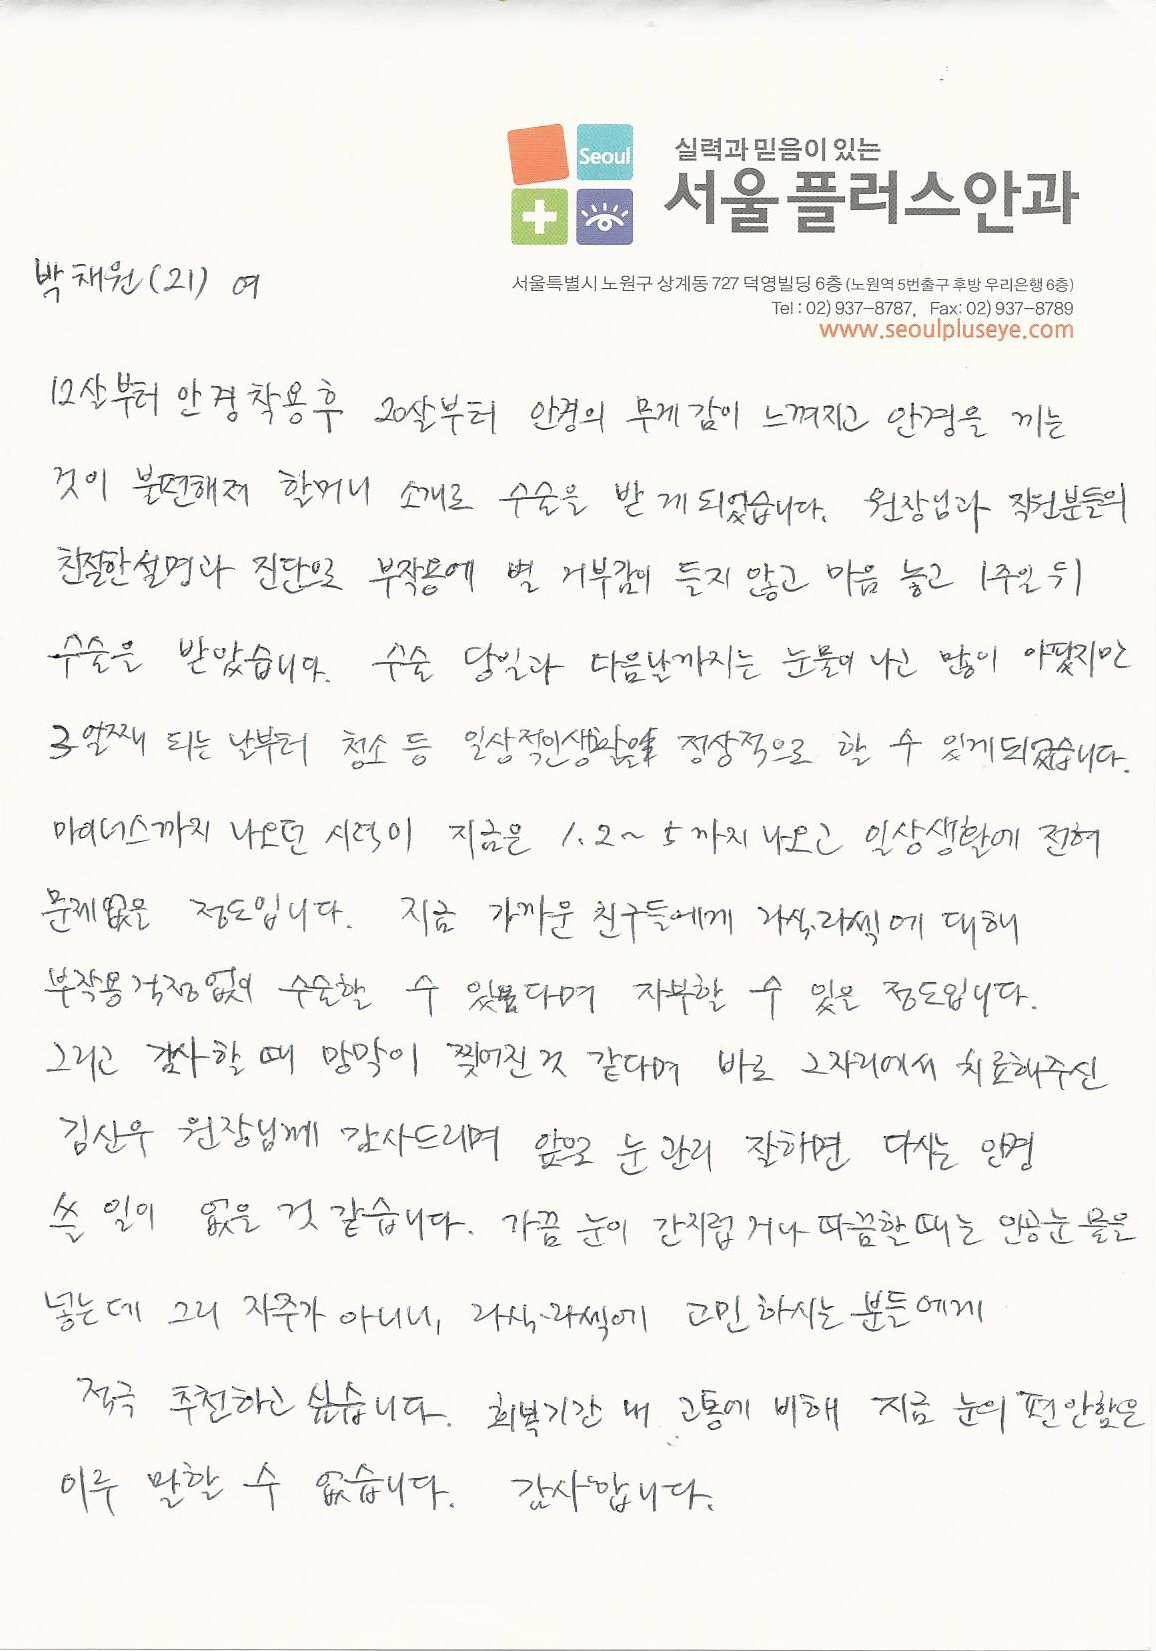 Seoul
실력과 믿음이 있는
서울플러스안과
서울특별시 노원구 상계동 727 덕영빌딩 6층 (노원역 5번출구 후방 우리은행 6층)
Tel : 02) 937-8787, Fax: 02) 937-8789
www.seoulpluseye.com
박채원(21) 여
12살부터 안경착용후 20살부터 안경의 무게감이 느껴지고 안경을 끼는
것이 불편해져 할머니 소개로 수술을 받게되었습니다. 원장님과 직원분들의
친절한설명과 진단으로 부작용에 별 거부감이 들지 않고 마음 놓고 1주일 뒤
수술을 받았습니다. 수술 당일과 다음날까지는 눈물이 나고 많이 아팠지만
3일째 되는 날부터 청소 등 일상적인생활을 정상적으로 할 수 있게되었습니다.
마이너스까지 나오던 시력이 지금은 1.2~5까지 나오고 일상생활에 전혀
문제없은 정도입니다. 지금 가까운 친구들에게 라식·라섹에 대해
부작용걱정없이 수술할 수 있다며 자부할 수 있은 정도입니다.
그리고 검사할 때 망막이 찢어진것 같다며 바로 그자리에서 치료해주신
김산우 원장님께 감사드리며 앞으로 눈관리 잘하면 다시는 안경
쓸 일이 없을 것 같습니다. 가끔 눈이 간지럽거나 따끔할때는 인공눈물을
넣는데 그리 자주가 아니니, 라식·라섹에 고민하시는 분들에게
적극 추천하고 싶습니다. 회복기간 내 고통에 비해 지금 눈의 편안함은
이루 말할 수 없습니다. 감사합니다.